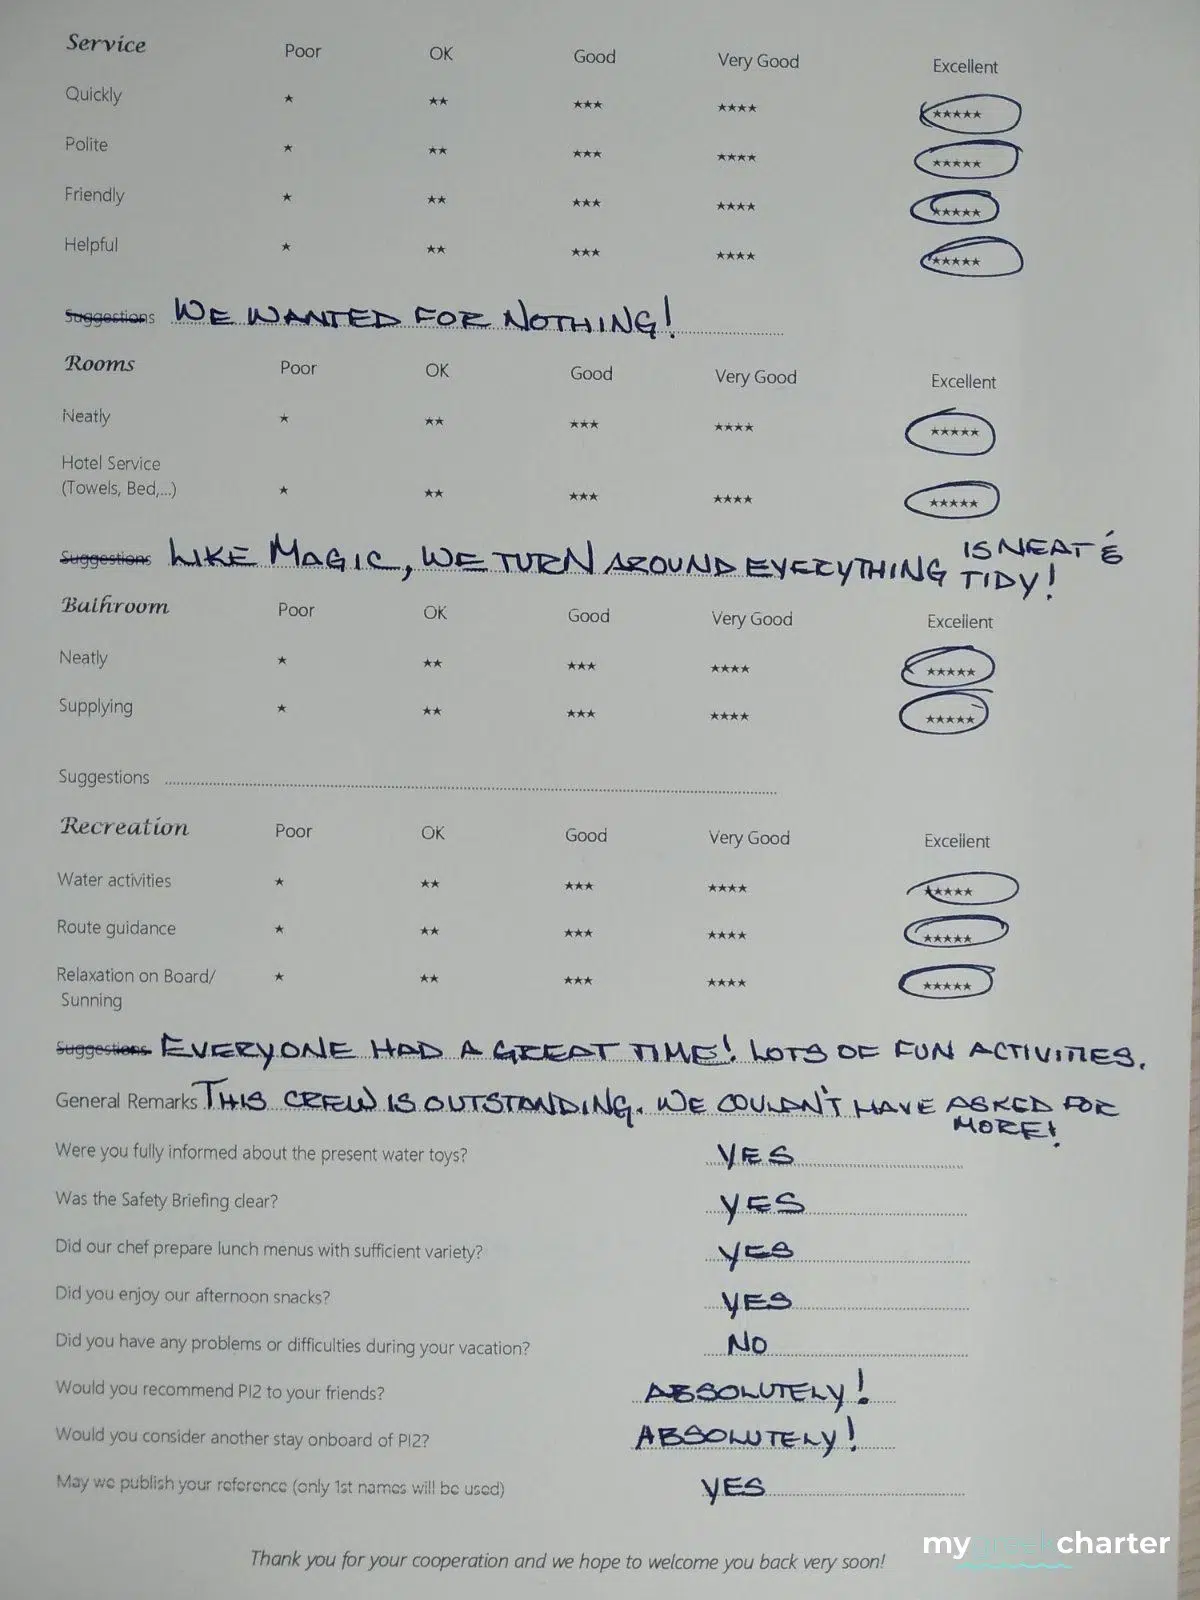 Service Poor OK Good Very Good Excellent
Quickly ★ ★★ ★★★ ★★★★ ★★★★★
Polite ★ ★★ ★★★ ★★★★ ★★★★★
Friendly ★ ★★ ★★★ ★★★★ ★★★★★
Helpful ★ ★★ ★★★ ★★★★ ★★★★★
Suggestions WE WANTED FOR NOTHING!
Rooms Poor OK Good Very Good Excellent
Neatly ★ ★★ ★★★ ★★★★ ★★★★★
Hotel Service
(Towels, Bed,...) ★ ★★ ★★★ ★★★★ ★★★★★
Suggestions LIKE MAGIC, WE TURN AROUND EVERYTHING IS NEAT &
TIDY!
Bathroom Poor OK Good Very Good Excellent
Neatly ★ ★★ ★★★ ★★★★ ★★★★★
Supplying ★ ★★ ★★★ ★★★★ ★★★★★
Suggestions
Recreation Poor OK Good Very Good Excellent
Water activities ★ ★★ ★★★ ★★★★ ★★★★★
Route guidance ★ ★★ ★★★ ★★★★ ★★★★★
Relaxation on Board/ ★ ★★ ★★★ ★★★★ ★★★★★
Sunning
Suggestions EVERYONE HAD A GREAT TIME! LOTS OF FUN ACTIVITIES.
General Remarks THIS CREW IS OUTSTANDING. WE COULDN'T HAVE ASKED FOR
MORE!
Were you fully informed about the present water toys? YES
Was the Safety Briefing clear? YES
Did our chef prepare lunch menus with sufficient variety? YES
Did you enjoy our afternoon snacks? YES
Did you have any problems or difficulties during your vacation? NO
Would you recommend PI2 to your friends? ABSOLUTELY!
Would you consider another stay onboard of PI2? ABSOLUTELY!
May we publish your reference (only 1st names will be used) YES
Thank you for your cooperation and we hope to welcome you back very soon!
mygreekcharter